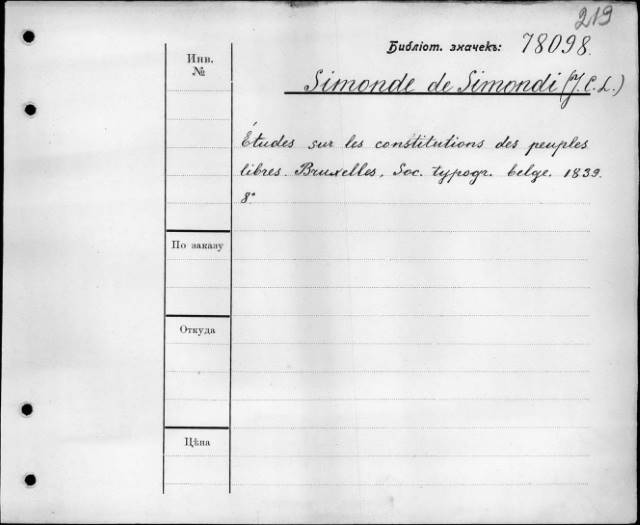 219
Библіот. значекъ: 78098.
Инв.
№
Simonde de Simondi (J. C. L.)
Études sur les constitutions des peuples
libres. Bruxelles, Soc. typogr. belge. 1839.
8°
По заказу
Откуда
Цѣна